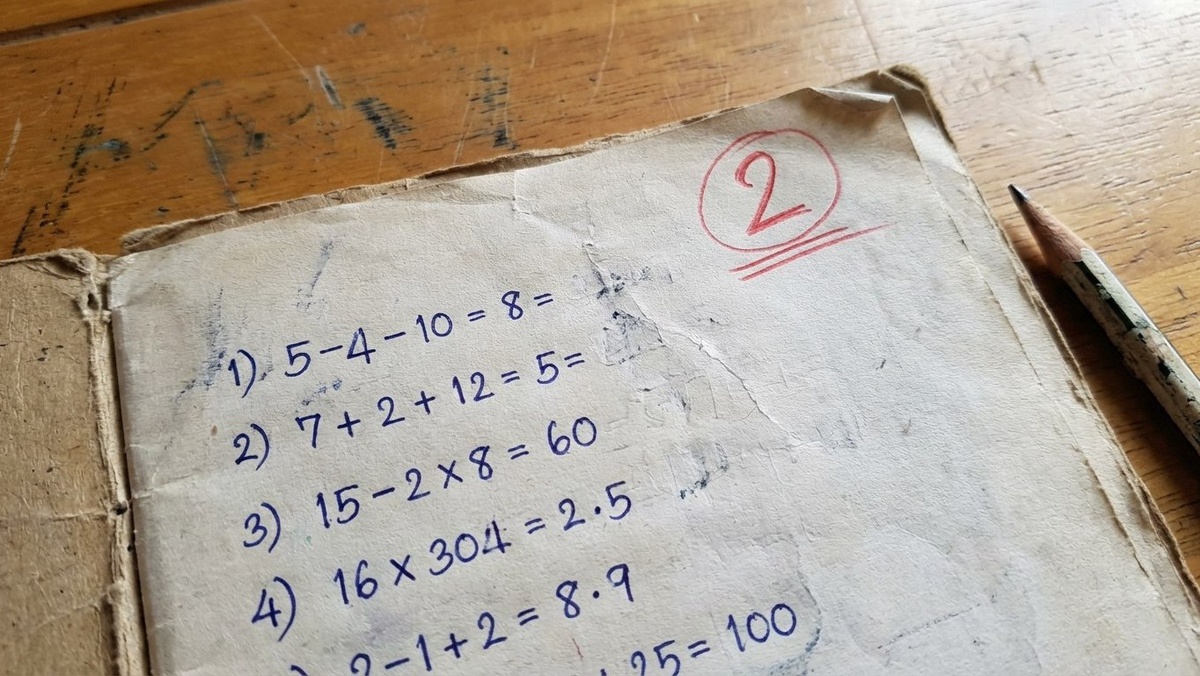 2
1) 5-4-10=8=
2) 7+2+12=5=
3) 15-2×8=60
4) 16×304=2.5
2-1+2=8.9
+25=100